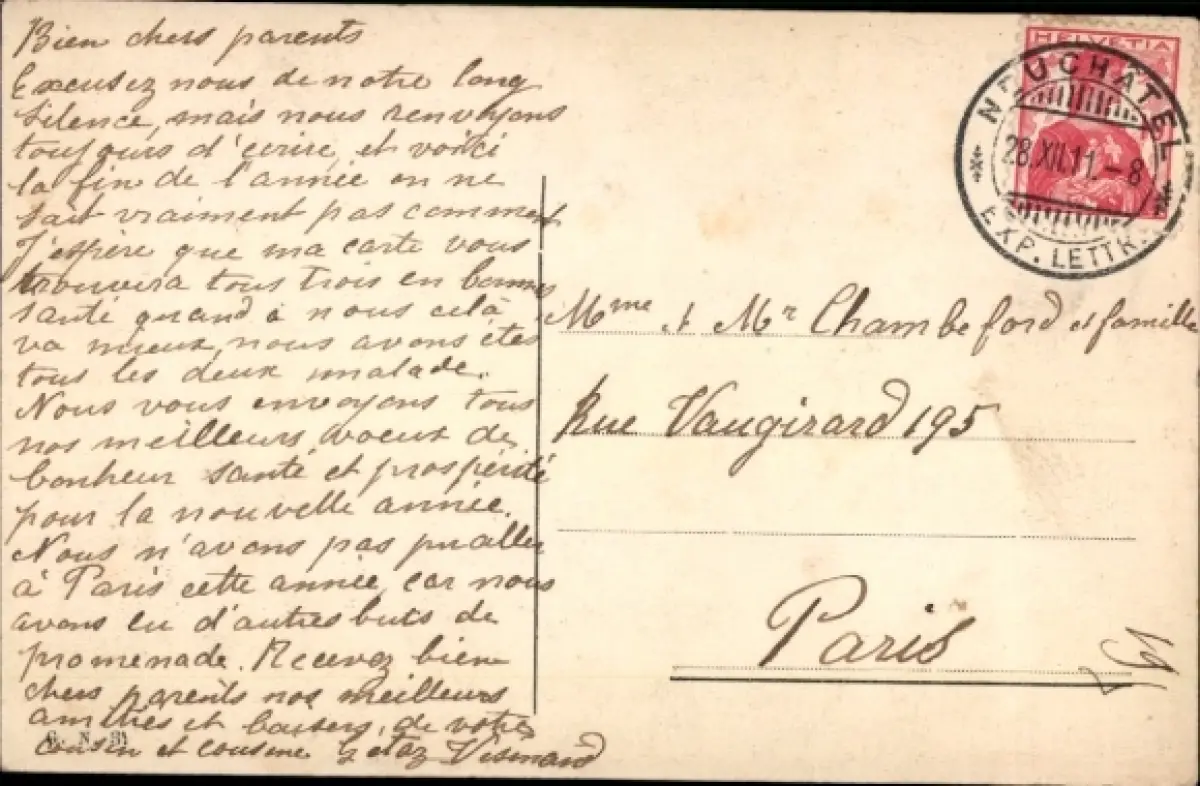 Bien chers parents
Excusez nous de notre long
silence, mais nous renvoyons
toujours d'écrire, et voici
la fin de l'année on ne
sait vraiment pas comment
J'espère que ma carte vous
trouvera tous trois en bonnes
santé quand à nous celà
va mieux, nous avons étés
tous les deux malade.
Nous vous envoyons tous
nos meilleurs voeux de
bonheur santé et prospérité
pour la nouvelle année.
Nous n'avons pas pu aller
à Paris cette année, car nous
avons eu d'autres buts de
promenade. Recevez bien
chers parents nos meilleurs
amitiés et baisers, de votre
cousin et cousine
G. N. 31
HELVETIA
NEUCHÂTEL
28.XII.11.-8
EXP. LETTR.
Mme et Mr Chambeford et famille
Rue Vaugirard 195
Paris